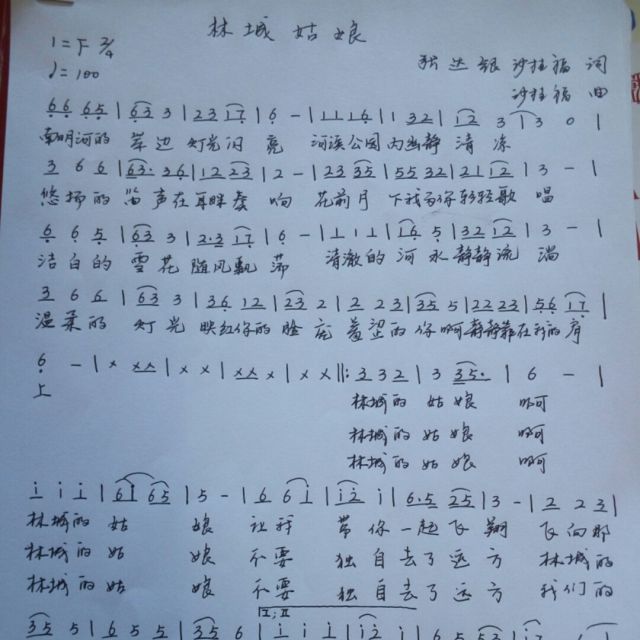 林城姑娘
1=F 2/4
♩=100
沙桂福 词
沙桂福 曲
6 6 6 5 | 6 3 3 | 2 3 1 7 | 6 - | 1 1 1 6 | 1 3 2 | 1 2 3 | 3 0 |
南明河的 岸边 灯光闪 亮 河滨公园内幽静 清凉
3 6 6 | 6 3· 3 6 | 1 2 2 3 | 2 - | 2 3 3 5 | 5 5 3 2 | 2 1 1 2 | 3 - |
悠扬的 笛声在耳畔奏 响 花前月 下我为你轻轻歌 唱
6 6 5 | 6 3 3 | 2·3 1 7 | 6 - | 1 1 1 | 1 6 5 | 3 2 1 2 | 3 - |
洁白的 雪花 随风飘 荡 清澈的 河水 静静流 淌
3 6 6 | 6 3 3 | 3 6 1 2 | 2 3 2 | 2 2 3 | 3 5 5 | 2 2 2 3 | 5 6 1 7 |
温柔的 灯光 映红你的 脸庞 羞望的 你啊静静靠在我的肩
6 - | × ×× | × × | ×× × | × × ‖: 3 3 2 | 3 3 5· | 6 - |
上 林城的 姑娘 啊
林城的 姑娘 啊
林城的 姑娘 啊
i i i | 6 i 6 5 | 5 - | 6 6 i | i 2 i | 6·5 2 5 | 3 - | 2 2 3 |
林城的 姑 娘 让我 带你一起飞 翔 飞向那
林城的 姑 娘 不要 独自去了远 方 林城的
林城的 姑 娘 不要 独自去了远 方 我们的